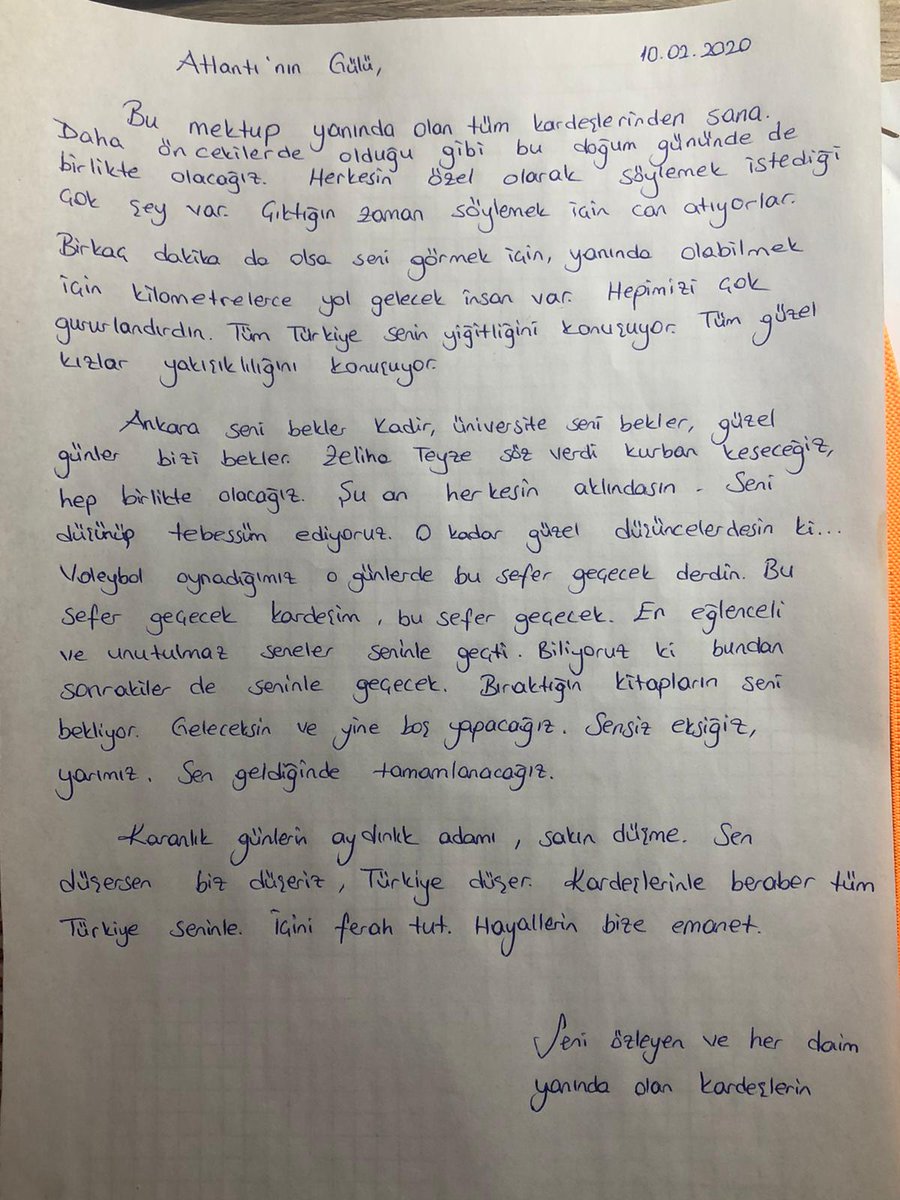 Atlantı'nın Gülü,
10.02.2020
Bu mektup yanında olan tüm kardeşlerinden sana.
Daha öncekilerde olduğu gibi bu doğum gününde de
birlikte olacağız. Herkesin özel olarak söylemek istediği
çok şey var. Çıktığın zaman söylemek için can atıyorlar.
Birkaç dakika da olsa seni görmek için, yanında olabilmek
için kilometrelerce yol gelecek insan var. Hepimizi çok
gururlandırdın. Tüm Türkiye senin yiğitliğini konuşuyor. Tüm güzel
kızlar yakışıklılığını konuşuyor.
Ankara seni bekler Kadir, üniversite seni bekler, güzel
günler bizi bekler. Zeliha Teyze söz verdi kurban keseceğiz,
hep birlikte olacağız. Şu an herkesin aklındasın. Seni
düşünüp tebessüm ediyoruz. O kadar güzel düşüncelerdesin ki...
Voleybol oynadığımız o günlerde bu sefer geçecek derdin. Bu
sefer geçecek kardeşim, bu sefer geçecek. En eğlenceli
ve unutulmaz seneler seninle geçti. Biliyoruz ki bundan
sonrakiler de seninle geçecek. Bıraktığın kitapların seni
bekliyor. Geleceksin ve yine boş yapacağız. Sensiz eksiğiz,
yarımız. Sen geldiğinde tamamlanacağız.
Karanlık günlerin aydınlık adamı, sakın düşme. Sen
düşersen biz düşeriz, Türkiye düşer. Kardeşlerinle beraber tüm
Türkiye seninle. İçini ferah tut. Hayallerin bize emanet.
Seni özleyen ve her daim
yanında olan kardeşlerin